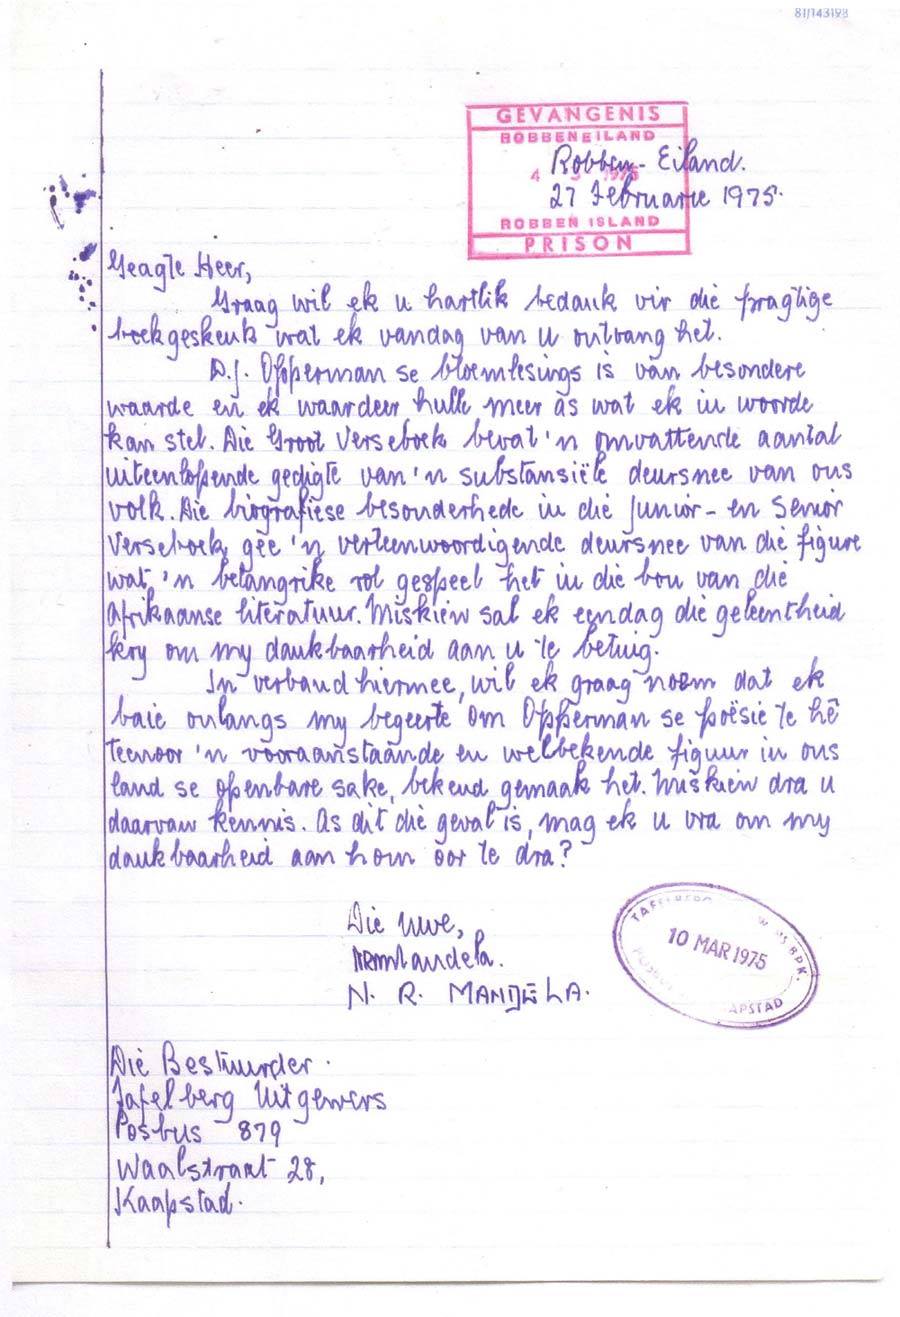 81/143198
GEVANGENIS
ROBBENEILAND
Robben-Eiland.
4 1975
27 Februarie 1975.
ROBBEN ISLAND
PRISON
Geagte Heer,
Graag wil ek u hartlik bedank vir die pragtige
boekgeskenk wat ek vandag van u ontvang het.
D.J. Opperman se bloemlesings is van besondere
waarde en ek waardeer hulle meer as wat ek in woorde
kan stel. Die Groot Verseboek bevat 'n omvattende aantal
uiteenlopende gedigte van 'n substansiële deursnee van ons
volk. Die biografiese besonderhede in die Junior- en Senior
Verseboek gee 'n verteenwoordigende deursnee van die figure
wat 'n belangrike rol gespeel het in die bou van die
Afrikaanse literatuur. Miskien sal ek eendag die geleentheid
kry om my dankbaarheid aan u te betuig.
In verband hiermee, wil ek graag noem dat ek
baie onlangs my begeerte om Opperman se poësie te hê
teenoor 'n vooraanstaande en welbekende figuur in ons
land se openbare sake, bekend gemaak het. Miskien dra u
daarvan kennis. As dit die geval is, mag ek u vra om my
dankbaarheid aan hom oor te dra?
Die Uwe,
NRMandela.
N. R. MANDELA.
TAFELBERG BPK.
10 MAR 1975
KAAPSTAD
Die Bestuurder.
Tafelberg Uitgewers
Posbus 879
Waalstraat 28,
Kaapstad.